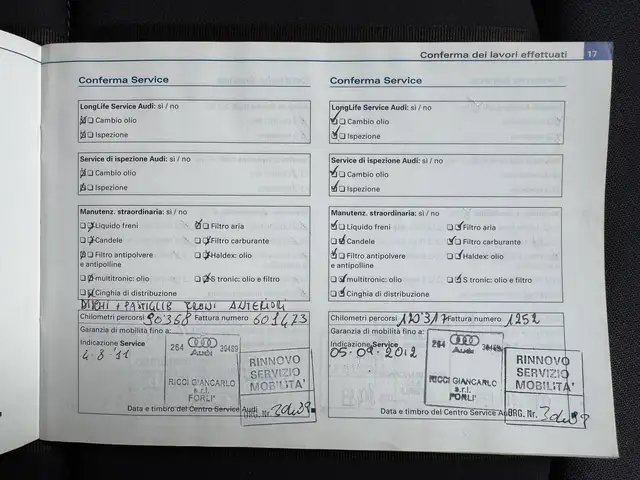 Conferma dei lavori effettuati 17
Conferma Service
LongLife Service Audi: sì / no
Cambio olio
Ispezione
Service di ispezione Audi: sì / no
Cambio olio
Ispezione
Manutenz. straordinaria: sì / no
Liquido freni
Filtro aria
Candele
Filtro carburante
Filtro antipolvere
e antipolline
Haldex: olio
multitronic: olio
S tronic: olio e filtro
Cinghia di distribuzione
DISCHI + PASTIGLIE FRENI ANTERIORI
Chilometri percorsi 90368 Fattura numero 601423
Garanzia di mobilità fino a:
Indicazione Service
4.8.'11
264 30489
Audi
RICCI GIANCARLO
s.r.l.
FORLI'
RINNOVO
SERVIZIO
MOBILITA'
ORG. Nr.
Data e timbro del Centro Service Audi
Conferma Service
LongLife Service Audi: sì / no
Cambio olio
Ispezione
Service di ispezione Audi: sì / no
Cambio olio
Ispezione
Manutenz. straordinaria: sì / no
Liquido freni
Filtro aria
Candele
Filtro carburante
Filtro antipolvere
e antipolline
Haldex: olio
multitronic: olio
S tronic: olio e filtro
Cinghia di distribuzione
Chilometri percorsi 120317 Fattura numero 1252
Garanzia di mobilità fino a:
Indicazione Service
05.09.2012
264 30489
Audi
RICCI GIANCARLO
s.r.l.
FORLI'
RINNOVO
SERVIZIO
MOBILITA'
ORG. Nr.
Data e timbro del Centro Service